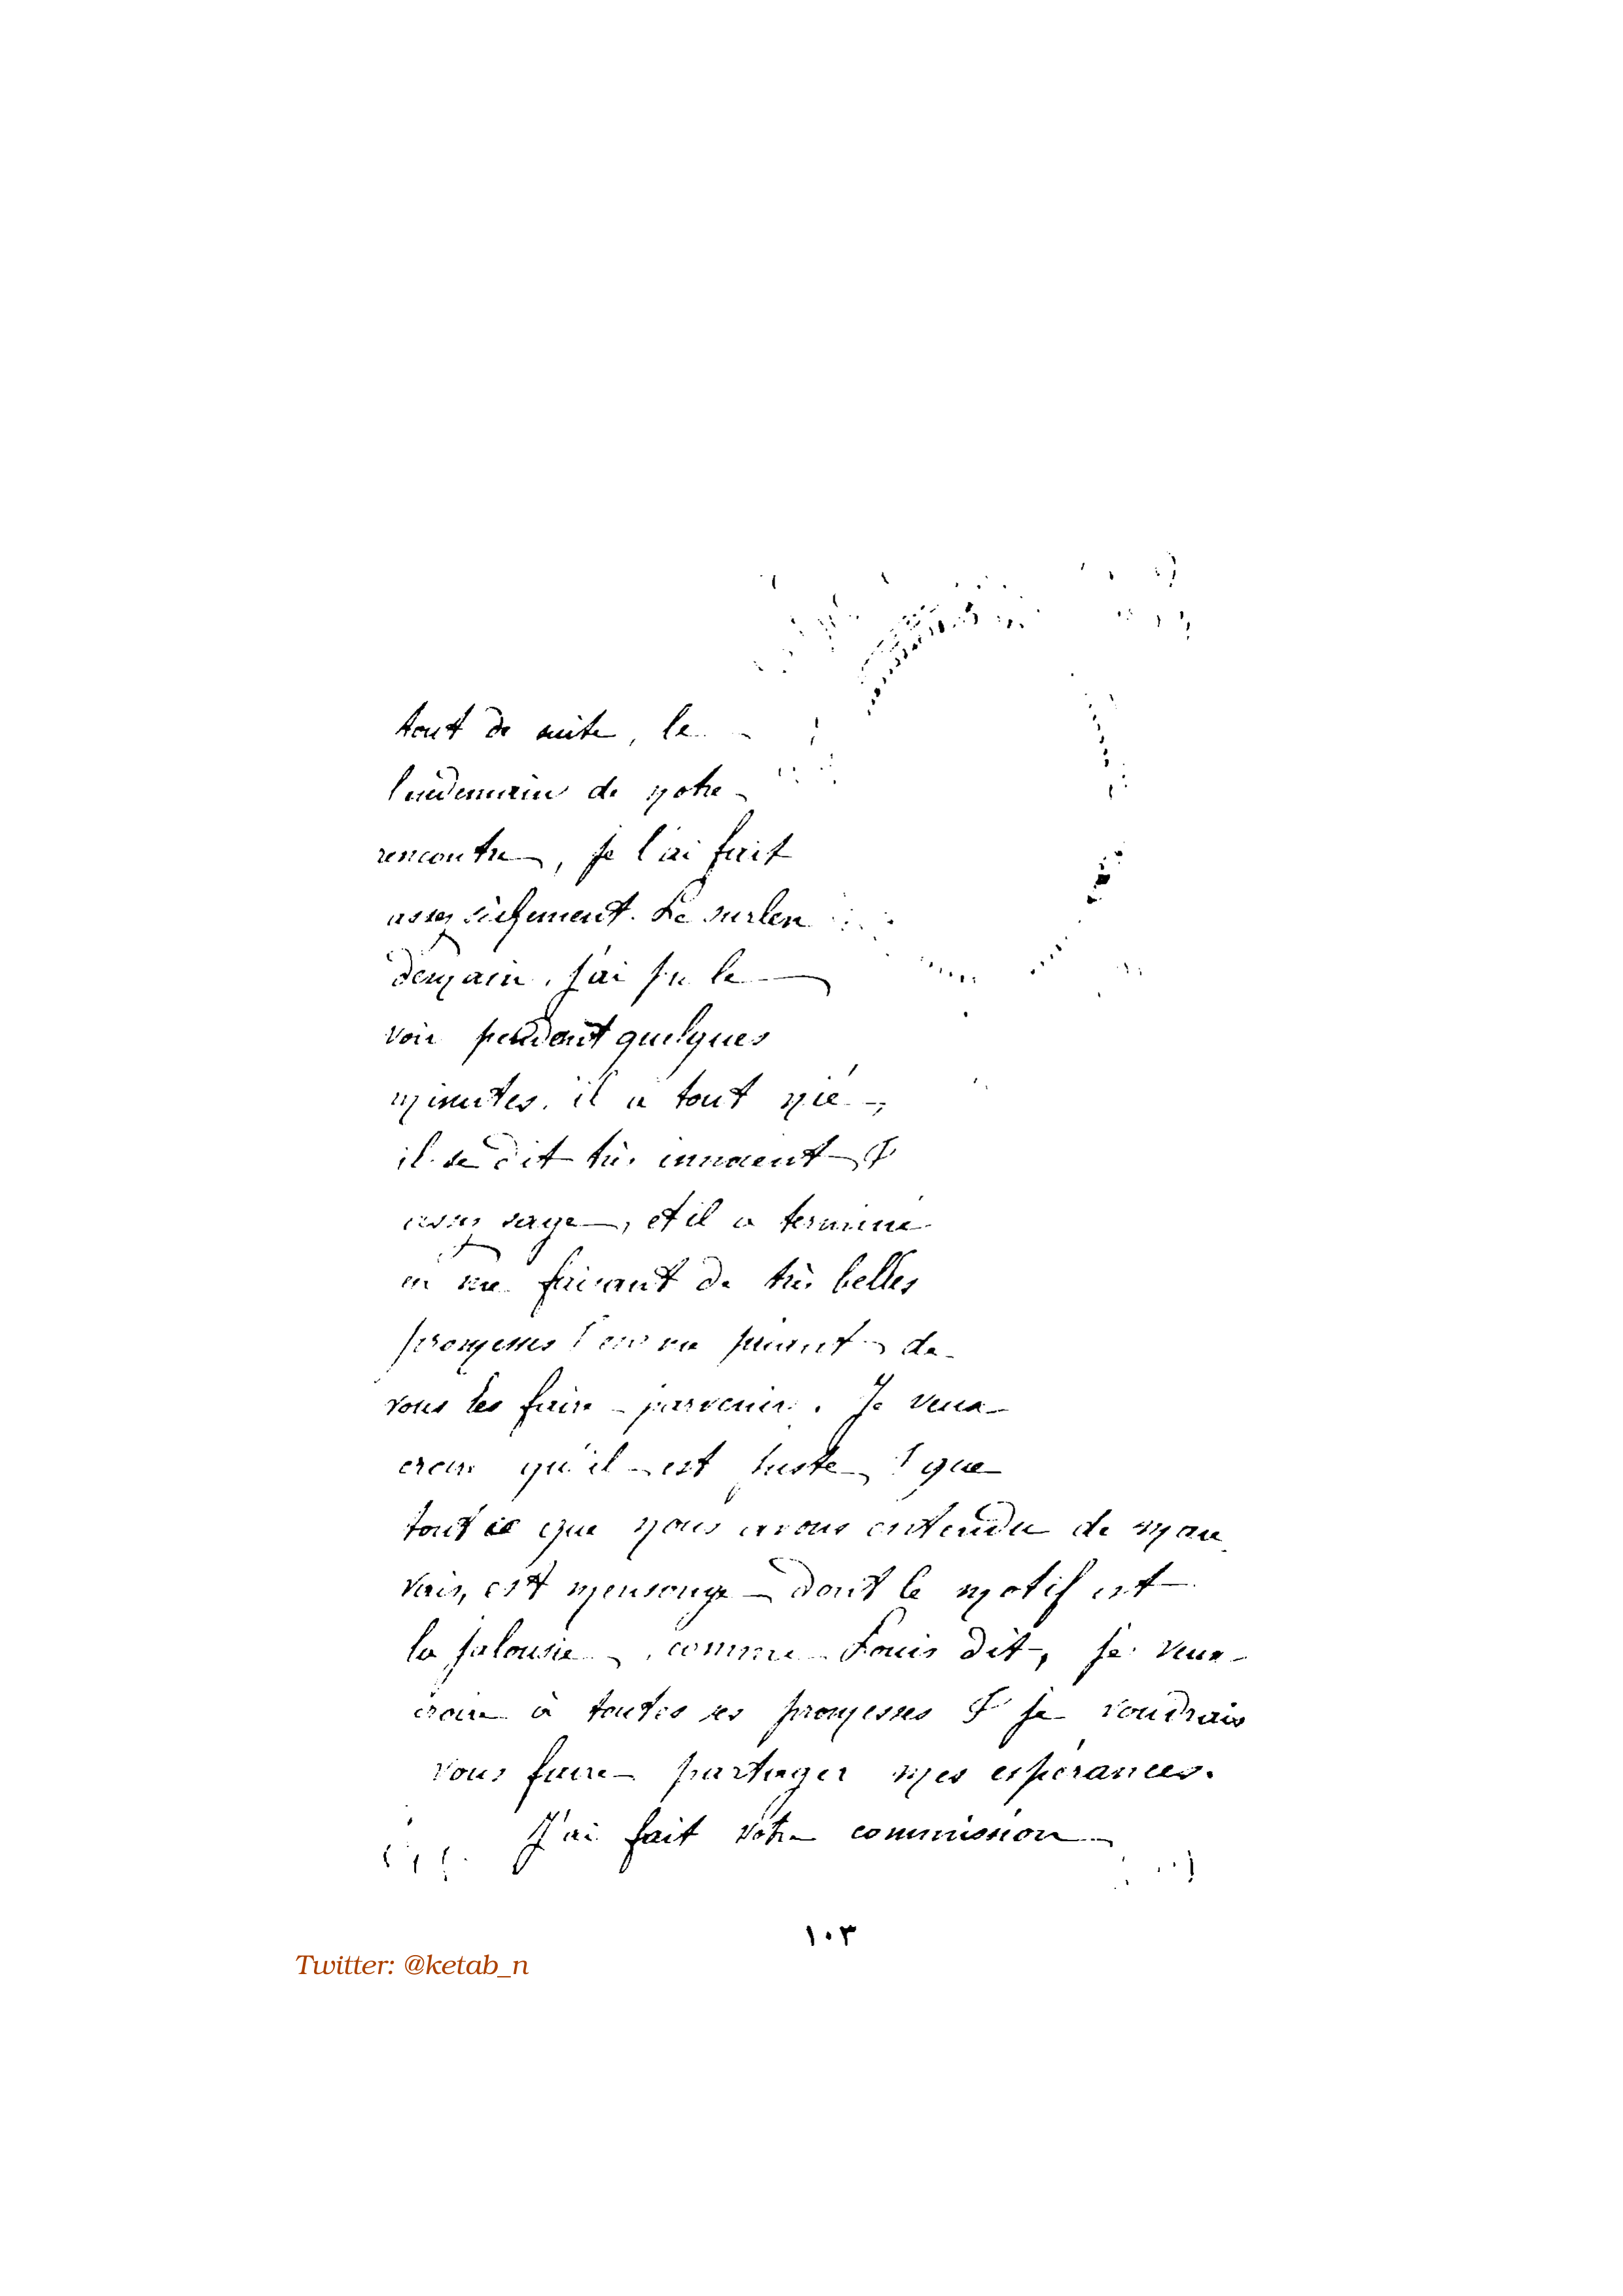 tout de suite, le
lendemain de notre
rencontre, je l'ai fait
assez sèchement. Le surlen
demain, j'ai pu le
voir pendant quelques
minutes. il a tout nié,
il se dit très innocent &
assez sage, et il a terminé
en me faisant de très belles
promesses & en me priant de
vous les faire parvenir. Je veux
croire qu'il est juste & que
tout ce que nous avons entendu de mau
vais, est mensonge dont le motif est
la jalousie, comme Louis dit, je veux
croire à toutes ses promesses & je voudrais
vous faire partager mes espérances.
J'ai fait votre commission
١٠٣
Twitter: @ketab_n